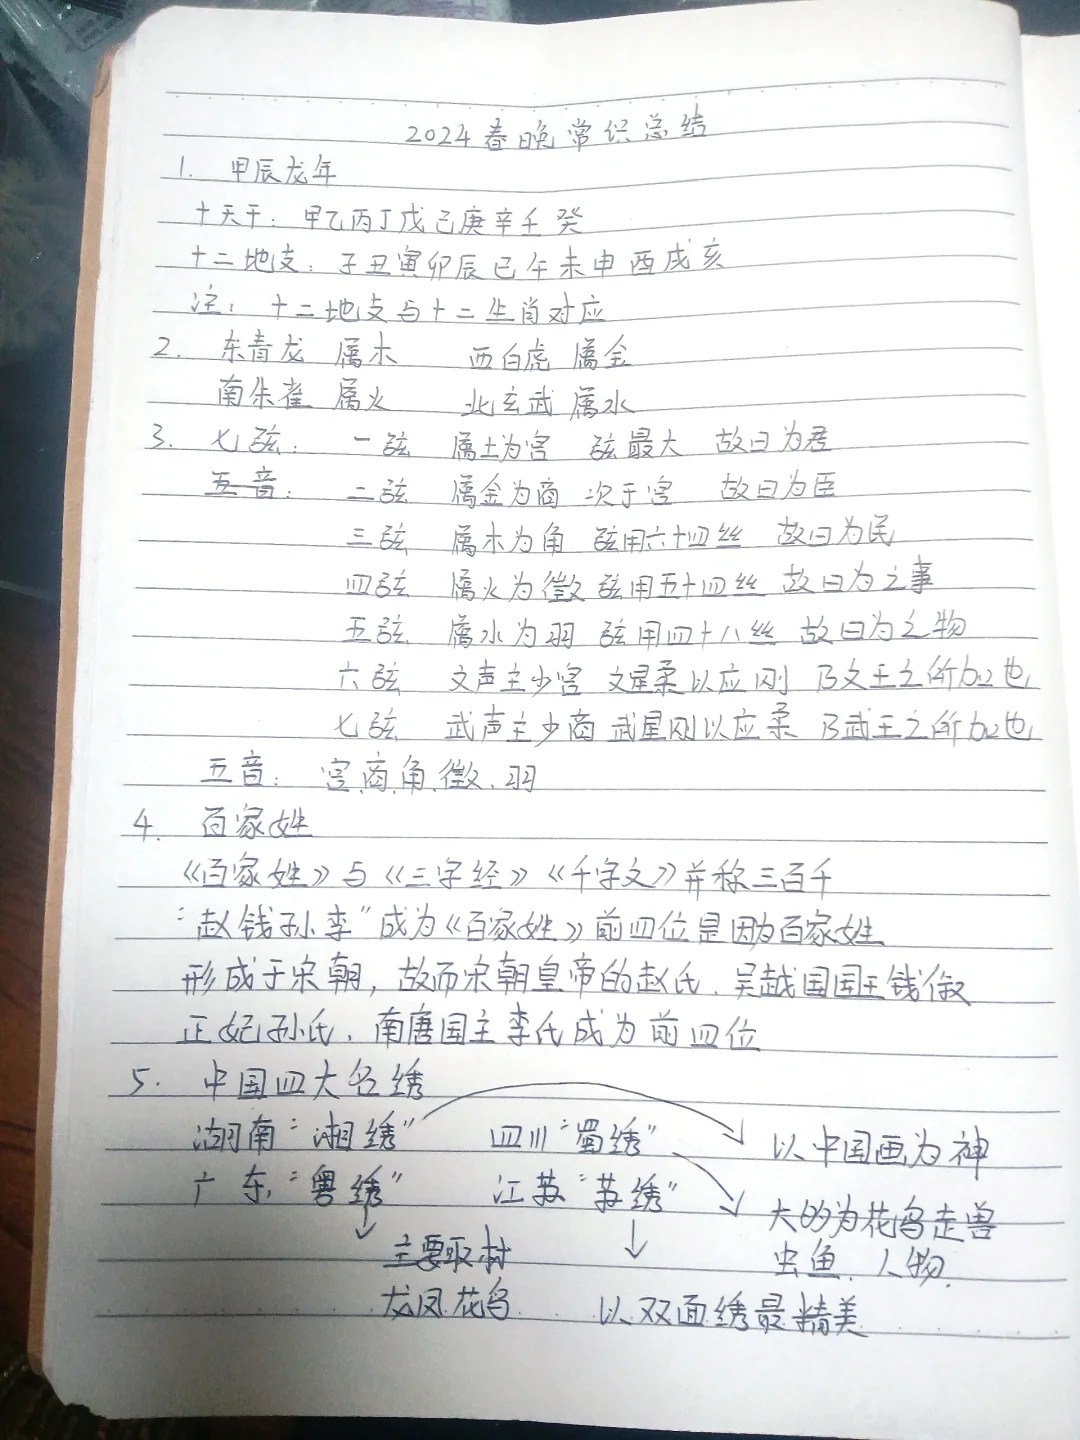 2024春晚常识总结
1. 甲辰龙年
十天干：甲乙丙丁戊己庚辛壬癸
十二地支：子丑寅卯辰巳午未申酉戌亥
注：十二地支与十二生肖对应
2. 东青龙 属木 西白虎 属金
南朱雀 属火 北玄武 属水
3. 七弦：一弦 属土为宫 弦最大 故曰为君
五音：二弦 属金为商 次于宫 故曰为臣
三弦 属木为角 弦用六十四丝 故曰为民
四弦 属火为徵 弦用五十四丝 故曰为之事
五弦 属水为羽 弦用四十八丝 故曰为之物
六弦 文声主少宫 文星柔以应刚 乃文王之所加也
七弦 武声主少商 武星刚以应柔 乃武王之所加也
五音：宫、商、角、徵、羽
4. 百家姓
《百家姓》与《三字经》《千字文》并称三百千
"赵钱孙李"成为《百家姓》前四位是因为百家姓
形成于宋朝，故而宋朝皇帝的赵氏、吴越国国王钱俶
正妃孙氏、南唐国主李氏成为前四位
5. 中国四大名绣
湖南"湘绣" 四川"蜀绣" 以中国画为神
广东"粤绣" 江苏"苏绣" 大的为花鸟走兽
主要取材 虫鱼、人物
龙凤花鸟 以双面绣最精美